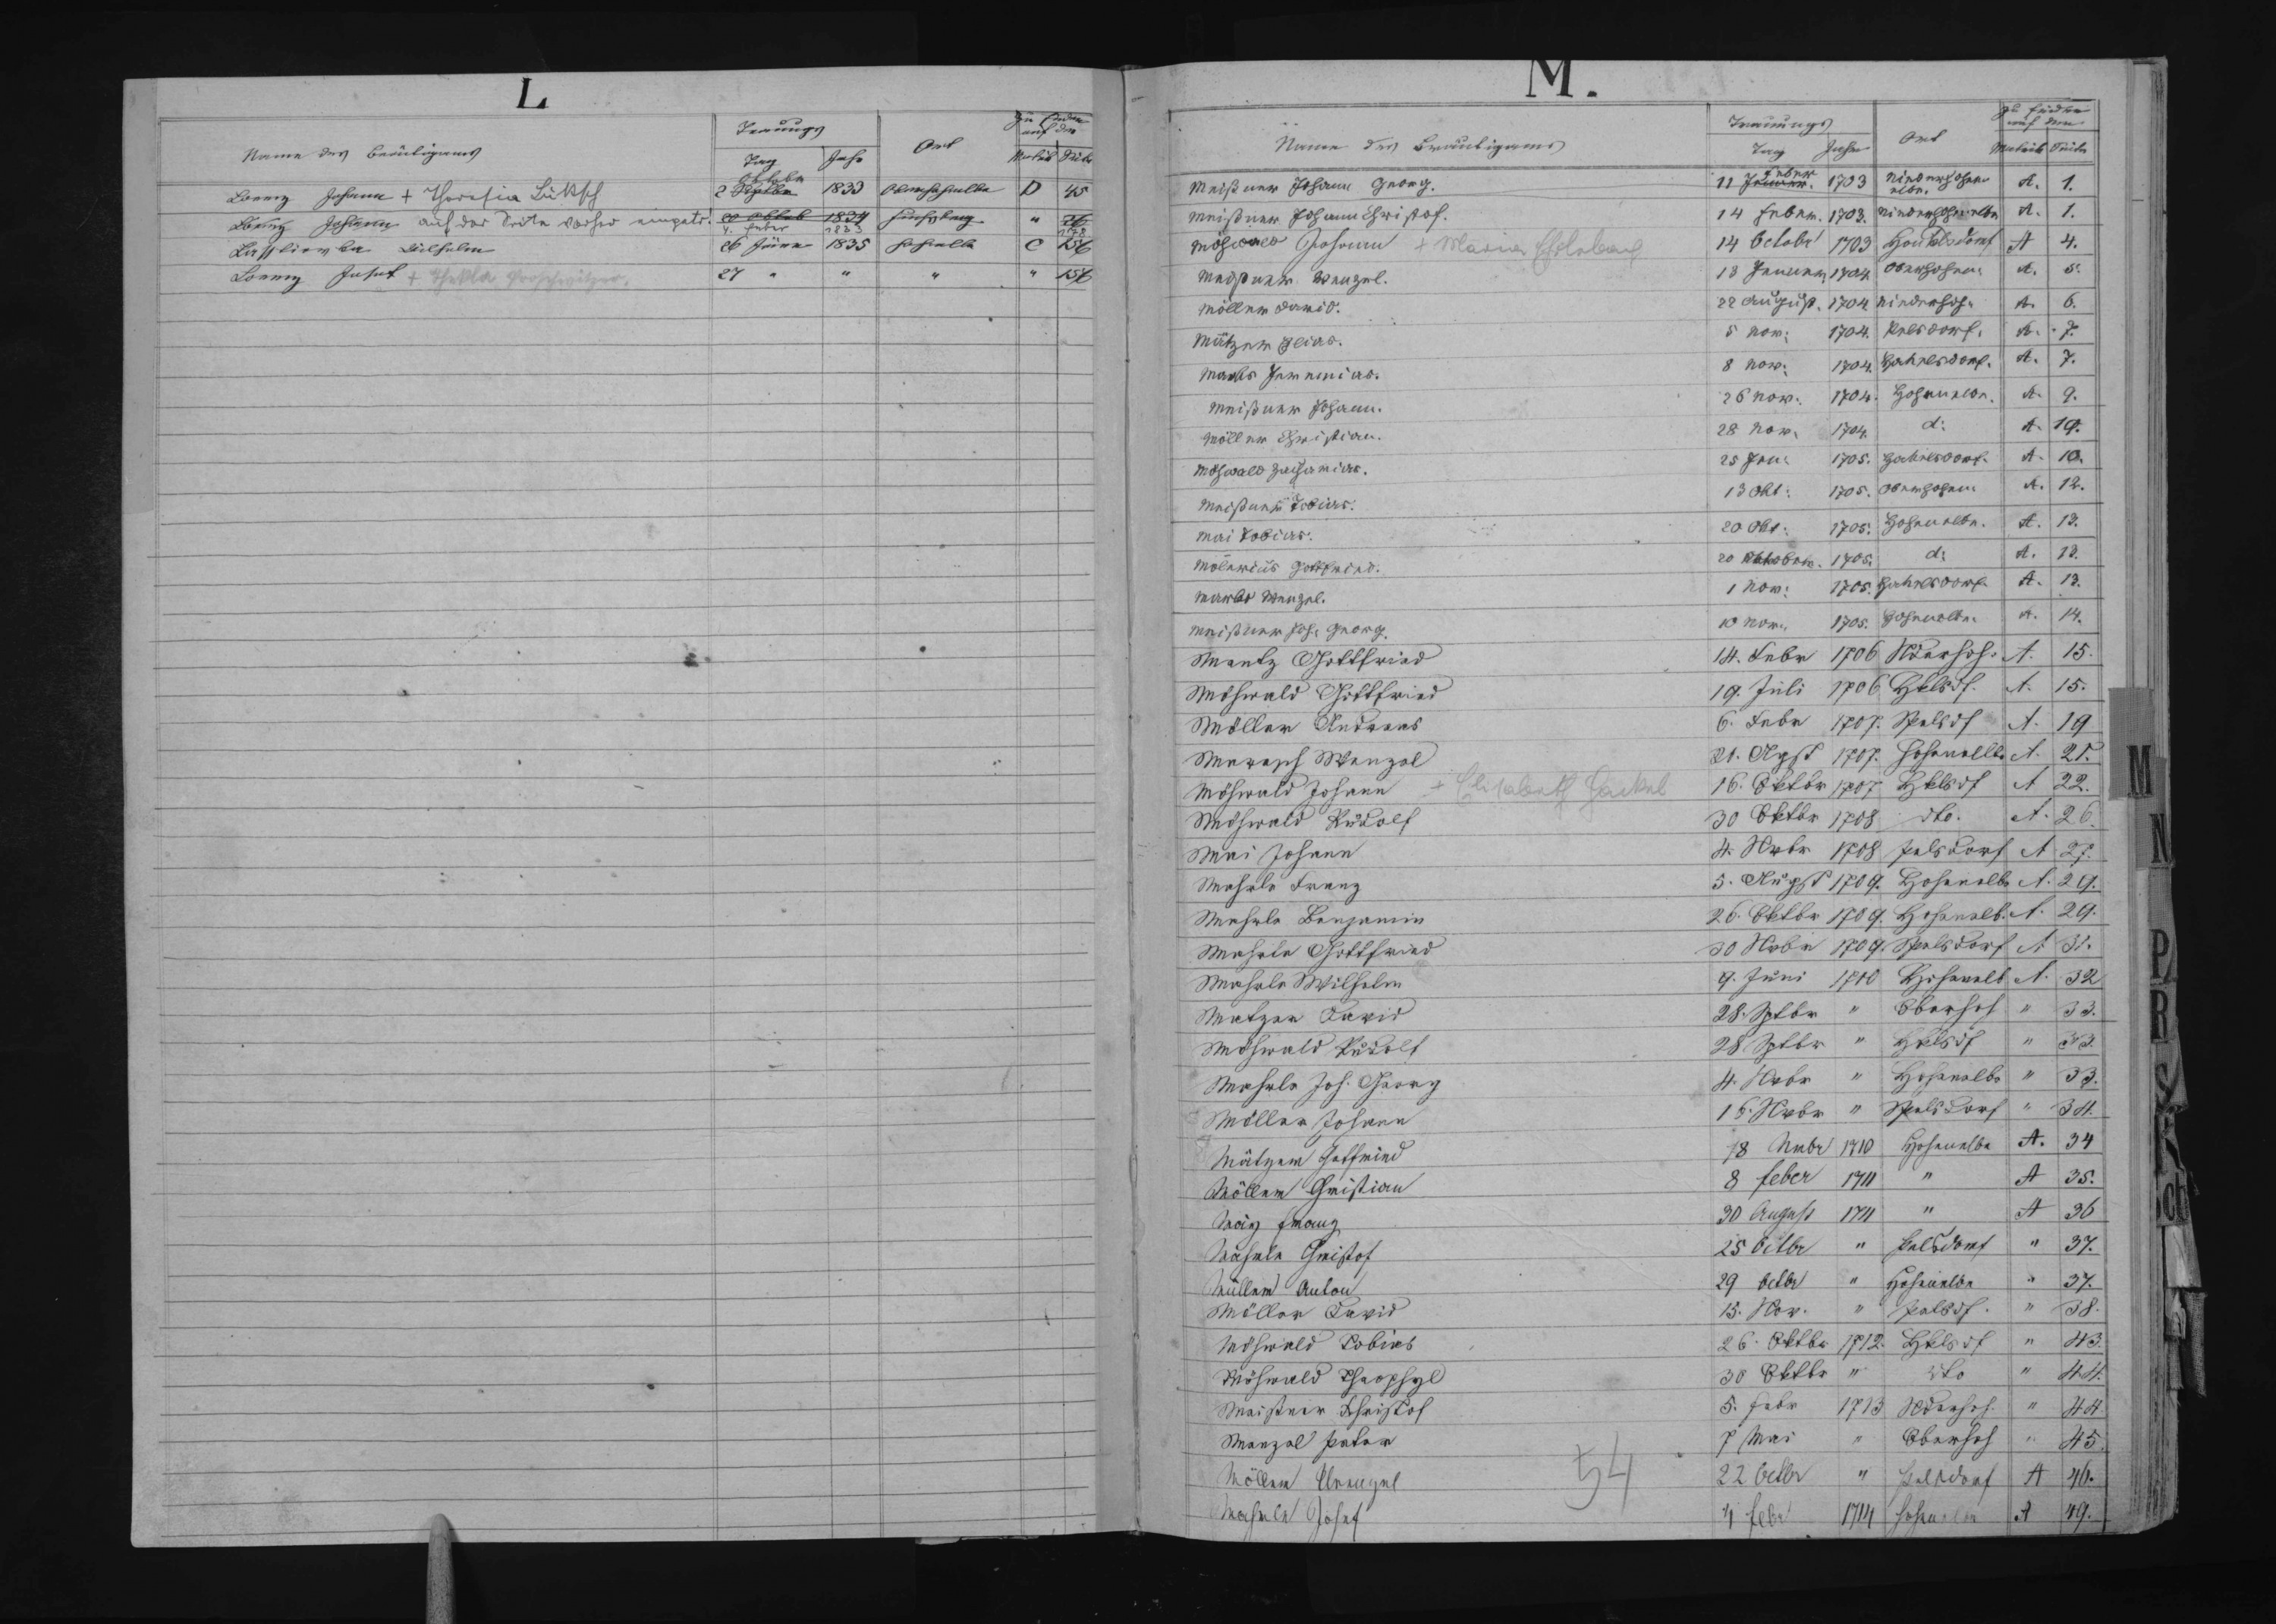 L
Name des Bräutigams Trauungs Ort Zu finden auf der
Tag Jahr Matrik Seite
Lorenz Johann + Theresia Lüksch 2 Oktober 1833 Oberhohenelbe D 45
Lorenz Johann auf der Seite vorher eingetr. 20 Oktob 1834 26
4. Feber 1833 178
Wilhelm 26 Jänn 1835 Hohenelb C 156
Lorenz Josef + Thekla 27 " " " " 156
M.
Name des Bräutigams Trauungs Ort Zu finden auf der
Tag Jahr Matrik Seite
Meißner Johann Georg. 11 Feber 1703 Niederhohenelbe. A. 1.
Meißner Johann Christof. 14 Feber. 1703. Niederhohenelbe A. 1.
Möhwald Johann + Maria 14 Octobr 1703 Hackelsdorf A 4.
Meißner Wenzel. 13 Jenner 1704. Oberhohen: A. 5.
Möller David. 22 August. 1704 Niederhoh: A. 6.
Mätzner Elias. 5 Nov: 1704. Pelsdorf. A. 7.
Marks Jeremias. 8 Nov: 1704. Hakelsdorf. A. 7.
Meißner Johann. 26 Nov: 1704. Hohenelbe. A. 9.
Möller Christian. 28 Nov: 1704. d: A. 10.
Möhwald Zacharias. 25 Jen: 1705. Hakelsdorf. A. 10.
Meißner Tobias. 13 Okt: 1705. Oberhohen: A. 12.
Mai Tobias. 20 Okt: 1705. Hohenelbe. A. 13.
Molerius Gottfried. 20 Oktober. 1705. d: A. 13.
Marks Wenzel. 1 Nov: 1705. Hakelsdorf A. 13.
Meißner Joh: Georg. 10 Nov. 1705. Hohenelbe. A. 14.
Mentz Gottfried 14. Febr 1706 Nderhoh. A. 15.
Möhwald Gottfried 19. Juli 1706 Hklsdf. A. 15.
Möller Andreas 6. Febr 1707. Pelsdf A. 19
Wenzel 21. Agst 1707. Hohenelbe A. 21.
Möhwald Johann + Elisabeth Hackel 16. Oktbr 1707 Hklsdf A 22.
Möhwald Rudolf 30 Oktbr 1708 dto. A. 26.
Mai Johann 4. Nvbr 1708 Pelsdorf A 27.
Mahrle Franz 5. Augst 1709. Hohenelbe A. 29.
Mahrle Benjamin 26. Oktbr 1709. Hohenelb. A. 29.
Mahrle Gottfried 30 Nvbr 1709. Pelsdorf A 31.
Mahrle Wilhelm 9. Juni 1710 Hohenelb A. 32
Matzner David 28. Sptbr " Oberhoh " 33.
Möhwald Rudolf 28. Sptbr " Hklsdf " 33.
Mahrle Joh. Georg 4. Nvbr " Hohenelbe " 33.
Möller Johann 16. Nvbr " Pelsdorf " 34.
Mätzner Gottfried 18 Nvbr 1710 Hohenelbe A. 34
Möller Christian 8 feber 1711 " A 35.
May Franz 30 August 1711 " A 36
Mahrle Christof 25 Octbr " Pelsdorf " 37.
Müller Anton 29 Octbr " Hohenelbe " 37.
Möller David 15. Nov. " Pelsdf. " 38.
Möhwald Tobias 26. Oktbr 1712. Hklsdf " 43.
Möhwald Theophyl 30 Oktbr " dto " 44.
Meißner Christof 5. Febr 1713 Nderhoh. " 44.
Menzel Peter 7 Mai " Oberhoh " 45.
Möller Wenzel 22 Octbr " Pelsdorf A 46.
Mahrle Josef 4 Febr 1714 Hohenelbe A 49.
54
M
N
P
R
S